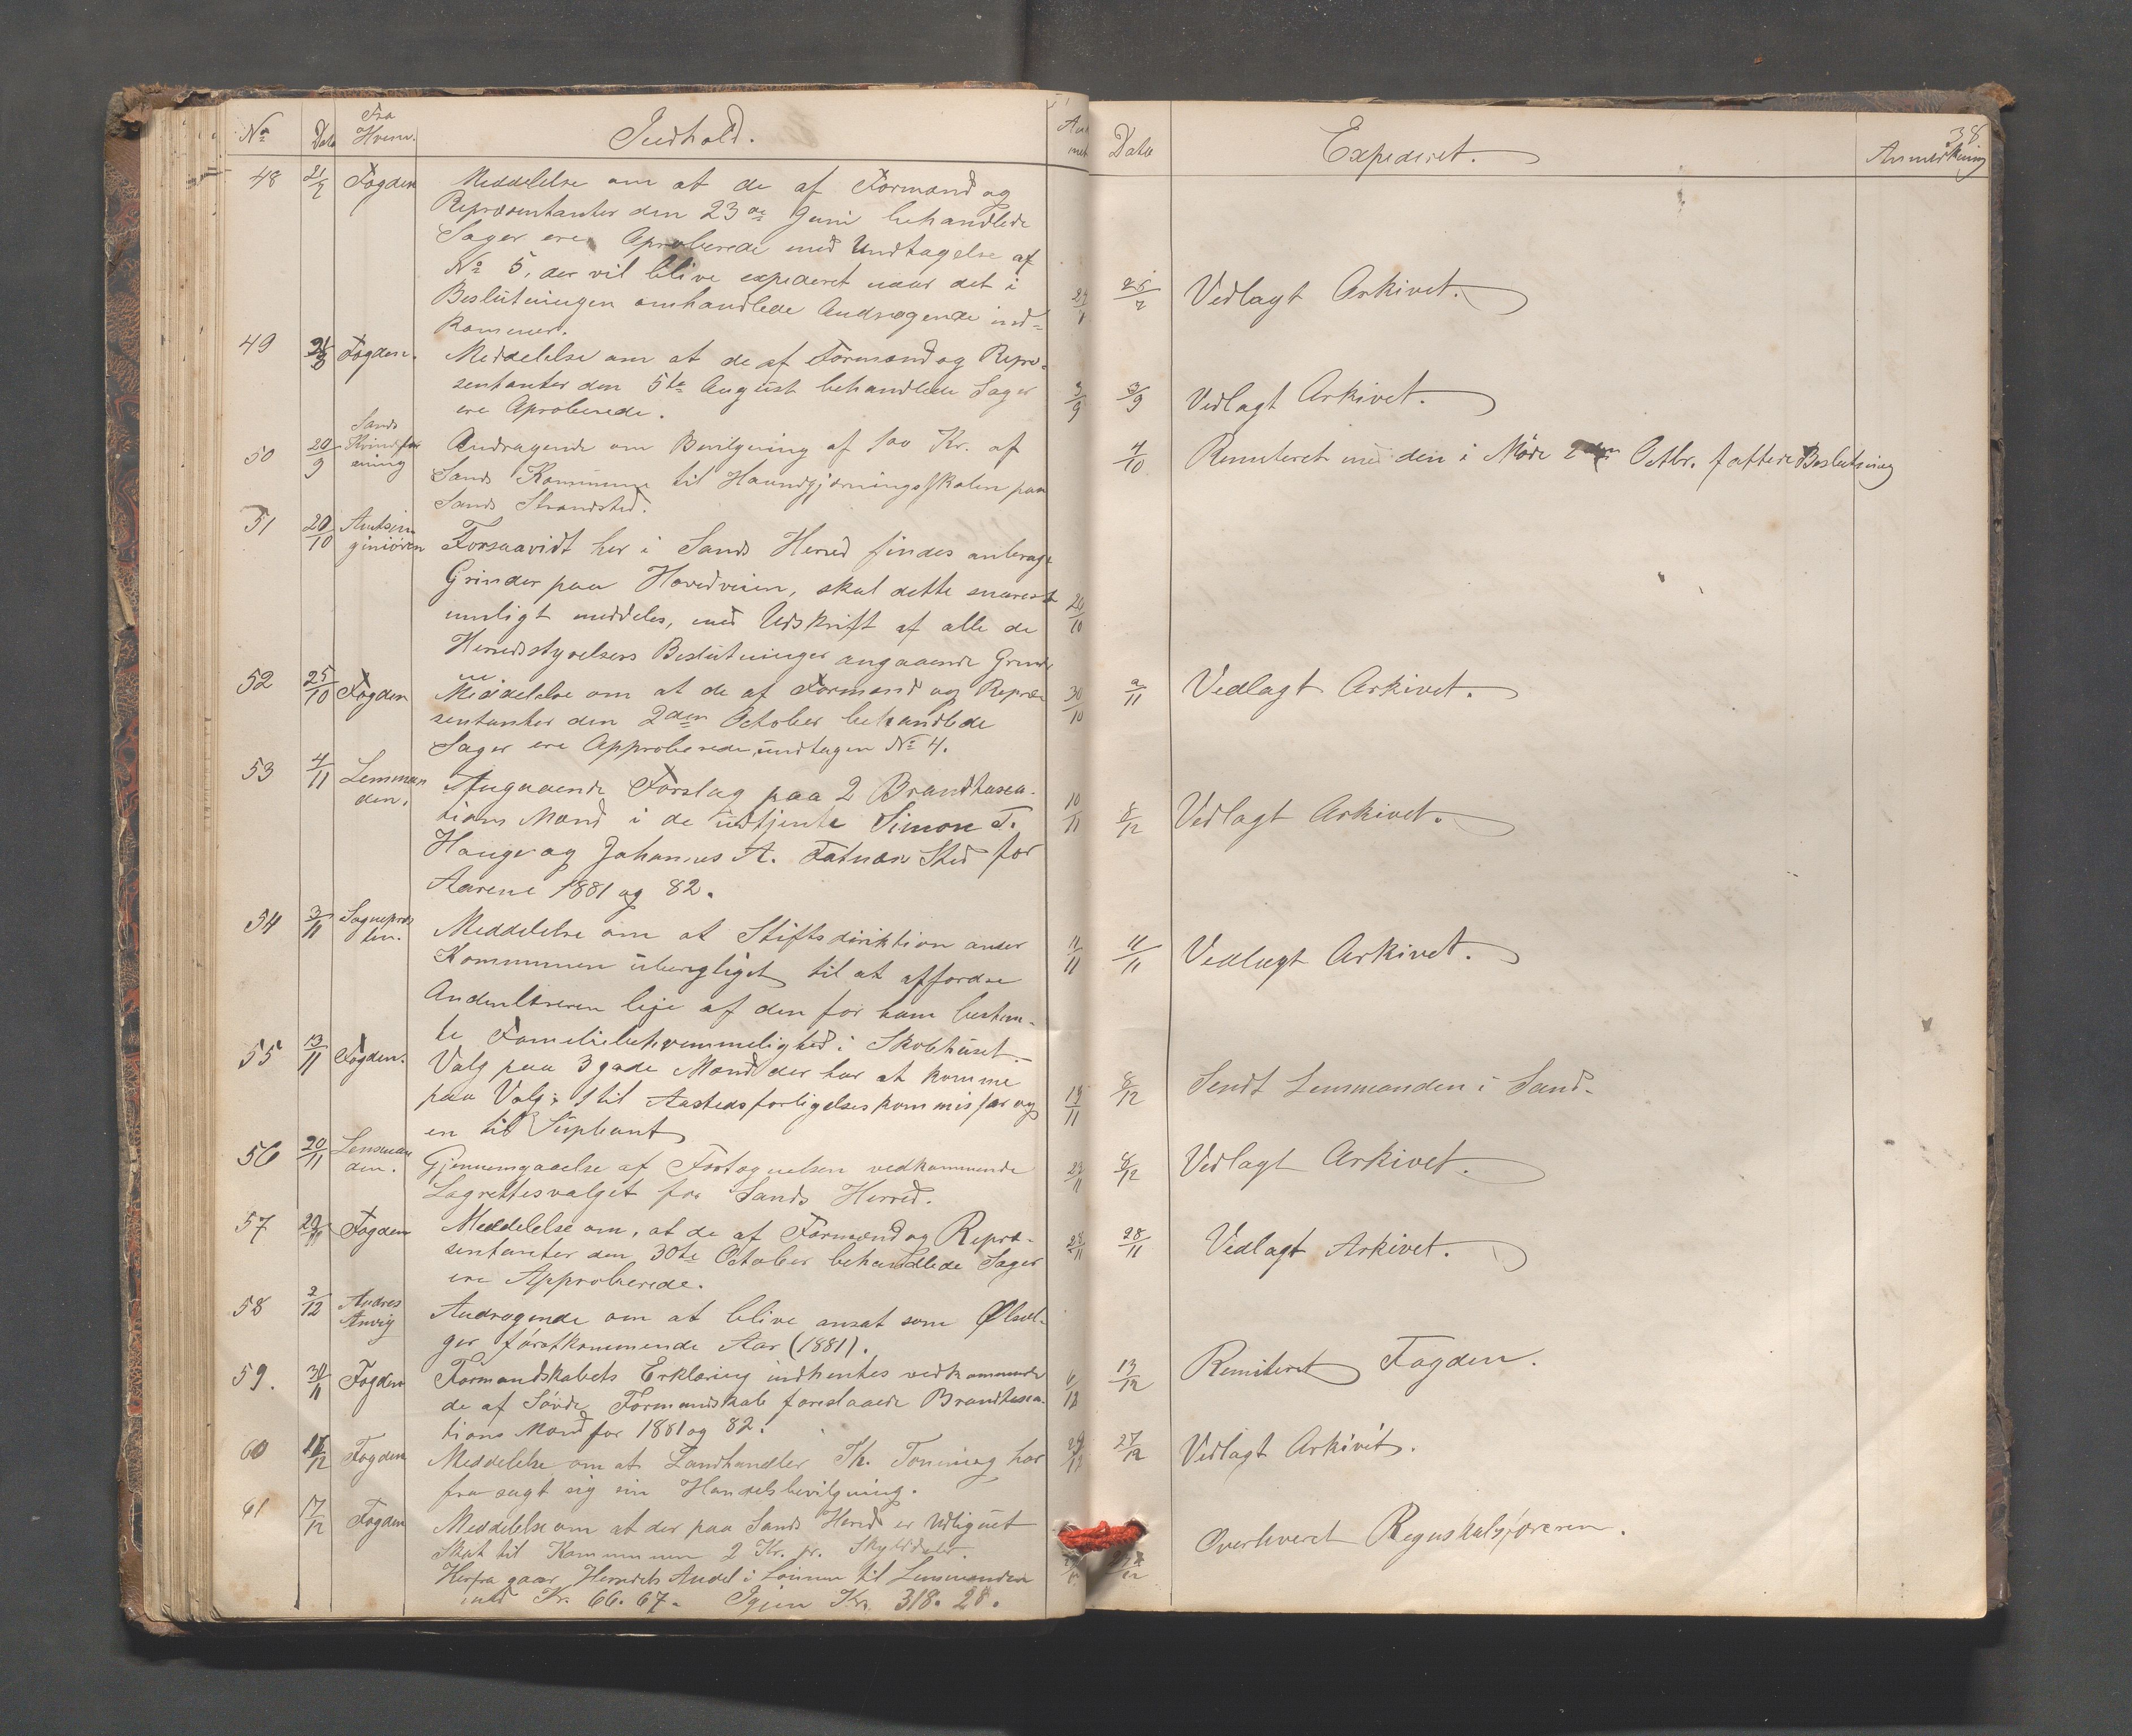 No Dato Fra Hvem. Indhold. Ank
met Dato Expederet. Anmerkning 38
48 21/7 Fogden Meddelelse om at de af Formænd og
Repræsentanter den 23de Juni behandlede
Sager ere Aproberede med Undtagelse af
No 5, der vil blive expederet naar det i
Beslutningen omhandlede Andragende ind-
kommer.
25/7 Vedlagt Arkivet.
49 Fogden. Meddelelse om at de af Formænd og Repræ-
sentanter den 5te August behandlede Sager
ere Aproberede.
3/9 3/9 Vedlagt Arkivet.
50 20/9 Sands
Kvindefor
ening Andragende om Bevilgning af 100 Kr. af
Sands Kommune til Haandgjerningsskolen paa
Sands Strandsted.
4/10 Remiteret med den i Møde 2den Octbr. fattede Beslutning
51 20/10 Amtsin
geniøren Forsaavidt her i Sands Herred findes anbragt
Grinder paa Hovedveien, skal dette snarest
muligt meddeles, med Udskrift af alle de
Herredsstyrelsens Beslutninger angaaende Grinder
ne
24/10
52 25/10 Fogden Meddelelse om at de af Formænd og Repræ
sentanter den 2den October behandlede
Sager ere Approberede, undtagen No 4.
30/10 2/11 Vedlagt Arkivet.
53 4/11 Lensman
den. Angaaende Forslag paa 2 Brandtaxa-
tions Mænd i de udtjente Simon T.
Hauge og Johannes A. Fatnæs Sted for
Aarene 1881 og 82.
10/11 8/12 Vedlagt Arkivet.
54 3/11 Sognepræs
ten. Meddelelse om at Stiftsdirektion anser
Kommunen uberegtiget til at affordre
Andenlæreren leje af den for ham bestem-
te Familiebekvemmelighed i Skolehuset.
11/11 11/11 Vedlagt Arkivet.
55 13/11 Fogden. Valg paa 3 gode Mænd der har at komme
paa Valg; 1 til Aastedsforligelseskommissær og
en til Supleant
19/11 8/12 Sendt Lensmanden i Sand.
56 20/11 Lensman
den. Gjennemgaaelse af Fortegnelsen vedkommende
Lagrettesvalget for Sands Herred.
23/11 8/12 Vedlagt Arkivet.
57 Fogden Meddelelse om, at de af Formænd og Repræ-
sentanter den 30te October behandlede Sager
ere Approberede.
28/11 28/11 Vedlagt Arkivet.
58 2/12 Andres
Anvig Andragende om at blive ansat som Ølsæl-
ger førstkommende Aar (1881).
13/12 Remiteret Fogden.
59. 30/11 Fogden Formandskabets Erklæring indhentes vedkommende
de af Søvde Formandskab foreslaaede Brandtaxa-
tions Mænd for 1881 og 82.
6/12
60 17/12 Fogden Meddelelse om at Landhandler Th. Tonning har
fra sagt sig sin Handelsbevilgning.
27/12 Vedlagt Arkivet.
61 17/12 Fogden Meddelelse om at der paa Sands Herred er Udlignet
Skat til Kommunen 2 Kr. pr. Skylddaler.
Herfra gaar Herredets Andel i Lønnen til Lensmanden
med Kr. 66. 67. Igjen Kr. 318. 28.
Overleveret Regnskabsføreren.